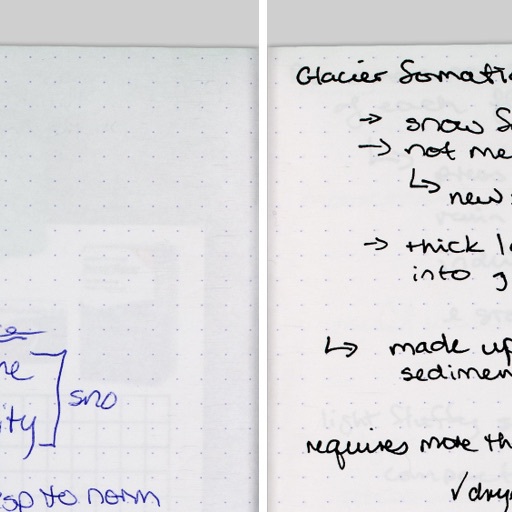 sno
to norm
Glacier formati
→ snow f
→ not me
↳ new
→ thick l
into g
↳ made up
sedimen
requires more th
√ dry